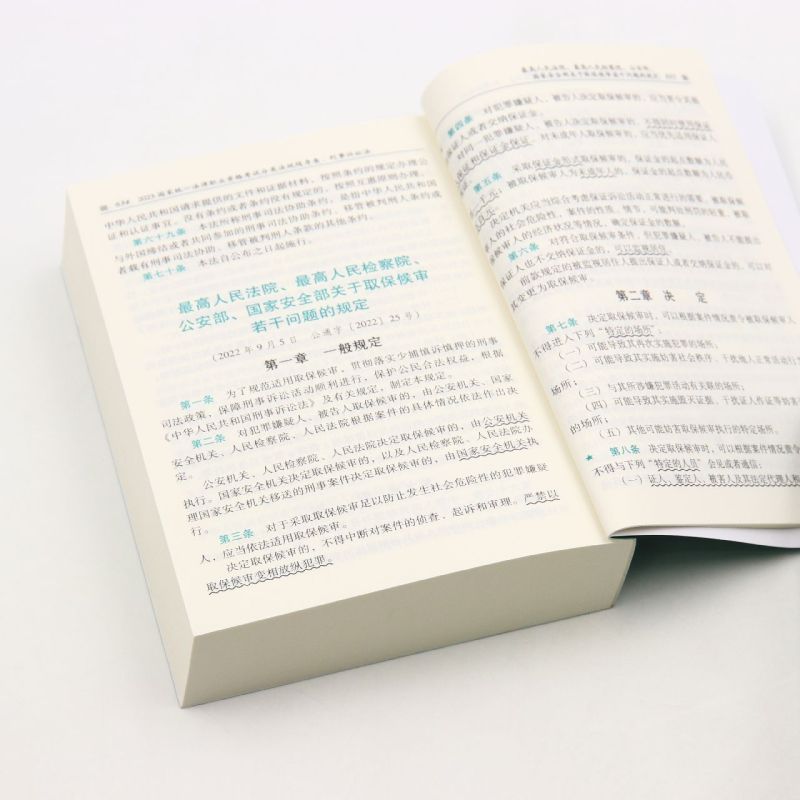 中华人民共和国请求提供的文件和证据材料，按照条约的规定办理公
证和认证事宜。没有条约或者条约没有规定的，按照互惠原则办理。
第六十九条 本法所称刑事司法协助条约，是指中华人民共和国
与外国缔结或者共同参加的刑事司法协助条约、移管被判刑人条约或
者载有刑事司法协助、移管被判刑人条款的其他条约。
第七十条 本法自公布之日起施行。
最高人民法院、最高人民检察院、
公安部、国家安全部关于取保候审
若干问题的规定
（2022年9月5日 公通字〔2022〕25号）
第一章 一般规定
第一条 为了规范适用取保候审，贯彻落实少捕慎诉慎押的刑事
司法政策，保障刑事诉讼活动顺利进行，保护公民合法权益，根据
《中华人民共和国刑事诉讼法》及有关规定，制定本规定。
第二条 对犯罪嫌疑人、被告人取保候审的，由公安机关、国家
安全机关、人民检察院、人民法院根据案件的具体情况依法作出决
定。
公安机关、人民检察院、人民法院决定取保候审的，由公安机关
执行。国家安全机关决定取保候审的，以及人民检察院、人民法院办
理国家安全机关移送的刑事案件决定取保候审的，由国家安全机关执
行。
第三条 对于采取取保候审足以防止发生社会危险性的犯罪嫌疑
人，应当依法适用取保候审。
决定取保候审的，不得中断对案件的侦查、起诉和审理。严禁以
取保候审变相放纵犯罪。
第四条 对犯罪嫌疑人、被告人决定取保候审的，应当责令其提
保证人或者交纳保证金。
对同一犯罪嫌疑人、被告人决定取保候审的，不得同时使用保证
第五条 采取保证金形式取保候审的，保证金的起点数额为人民
被取保候审人为未成年人的，保证金的起点数额为人民币
决定机关应当综合考虑保证诉讼活动正常进行的需要，被取保候
人的社会危险性，案件的性质、情节，可能判处刑罚的轻重，被取
保候审人的经济状况等情况，确定保证金的数额。
第六条 对符合取保候审条件，但犯罪嫌疑人、被告人不能提出
保证人也不交纳保证金的，可以监视居住。
前款规定的被监视居住人提出保证人或者交纳保证金的，可以对
其变更为取保候审。
第二章 决 定
第七条 决定取保候审时，可以根据案件情况责令被取保候审人
不得进入下列“特定的场所”：
（一）可能导致其再次实施犯罪的场所；
（二）可能导致其实施妨害社会秩序、干扰他人正常活动行
场所；
（三）与其所涉嫌犯罪活动有关联的场所；
（四）可能导致其实施毁灭证据、干扰证人作证等妨害
的场所；
（五）其他可能妨害取保候审执行的特定场所。
★ 第八条 决定取保候审时，可以根据案件情况责令
不得与下列“特定的人员”会见或者通信：
（一）证人、鉴定人、被害人及其法定代理人和